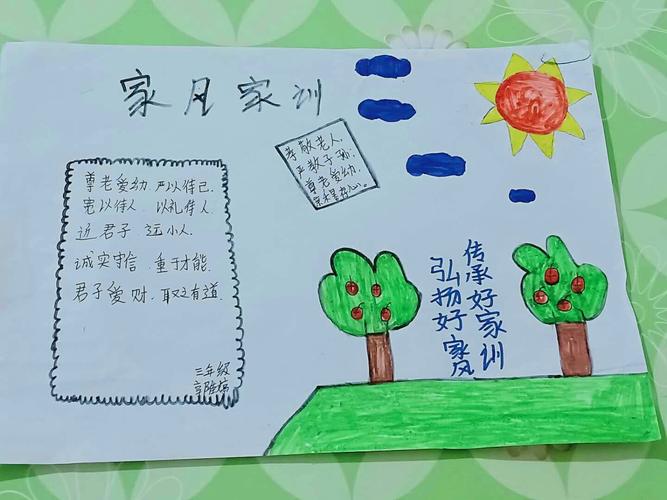 家风家训
孝敬老人,
严教子孙,
尊老爱幼,
尊老爱幼.严以待己.
宽以待人.以礼待人.
近君子 远小人.
诚实守信.重于才能.
君子爱财.取之有道.
三年级
传承好家训
弘扬好家风